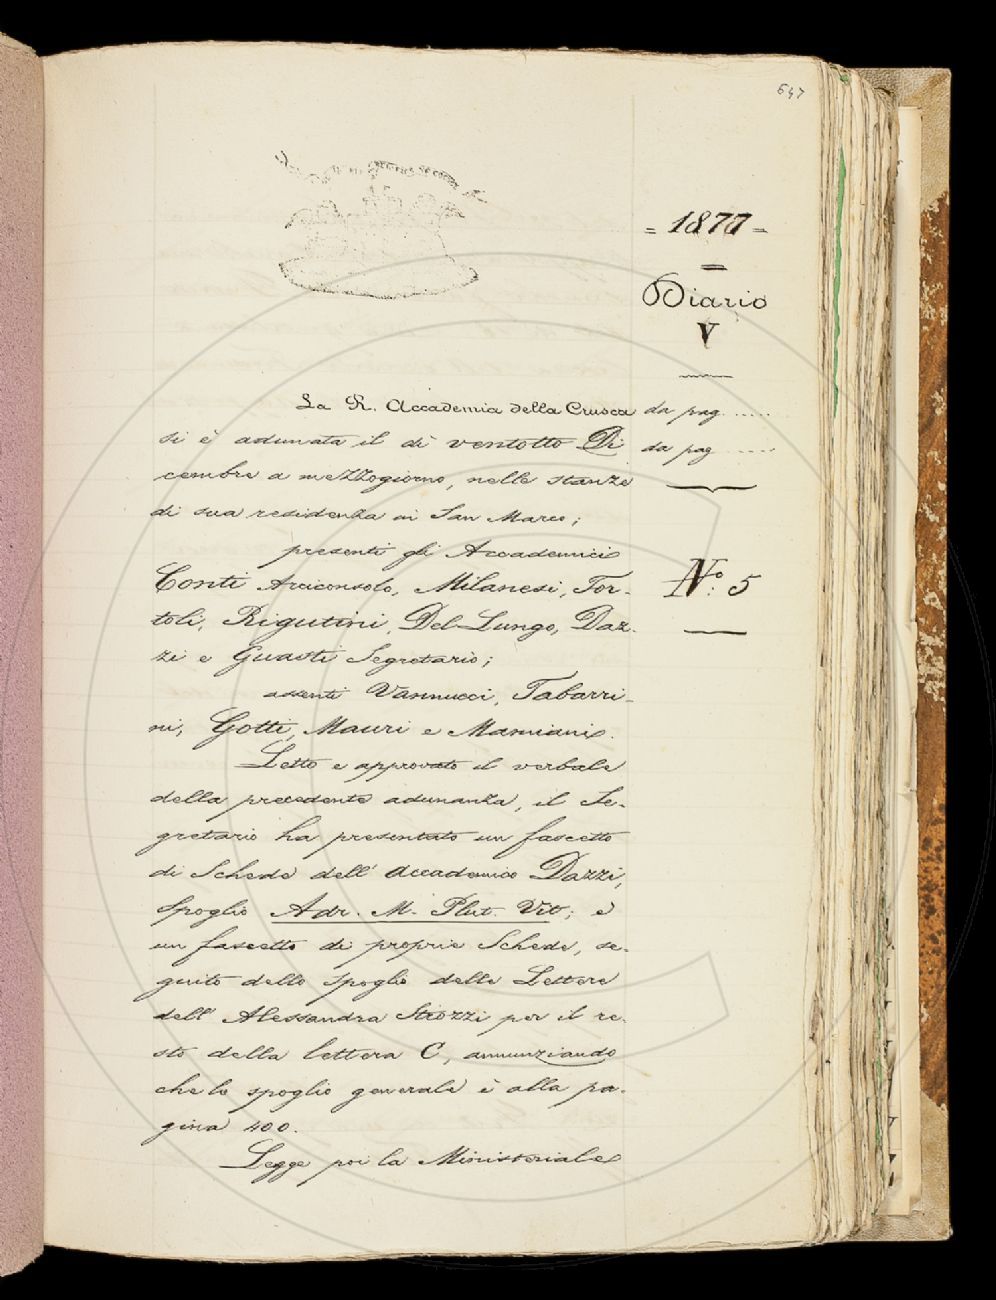 647
= 1877 =
Diario
V
La R. Accademia della Crusca
da pag......
si è adunata il dì ventotto Di
da pag......
cembre a mezzogiorno, nelle stanze
di sua residenza in San Marco;
presenti gli Accademici
Conti Arciconsolo, Milanesi, Tor-
N.° 5
toli, Rigutini, Del-Lungo, Daz-
zi e Guasti Segretario;
assenti Vannucci, Tabarri-
ni, Gotti, Mauri e Mamiani.
Letto e approvato il verbale
della precedente adunanza, il Se-
gretario ha presentato un fascetto
di Schede dell' Accademico Dazzi,
Spoglio Adr. M. Plut. Vit; e
un fascetto di proprie Schede, se-
guito dello spoglio delle Lettere
dell' Alessandra Strozzi per il re-
sto della lettera C, annunziando
che lo spoglio generale è alla pa-
gina 400.
Legge poi la Ministeriale